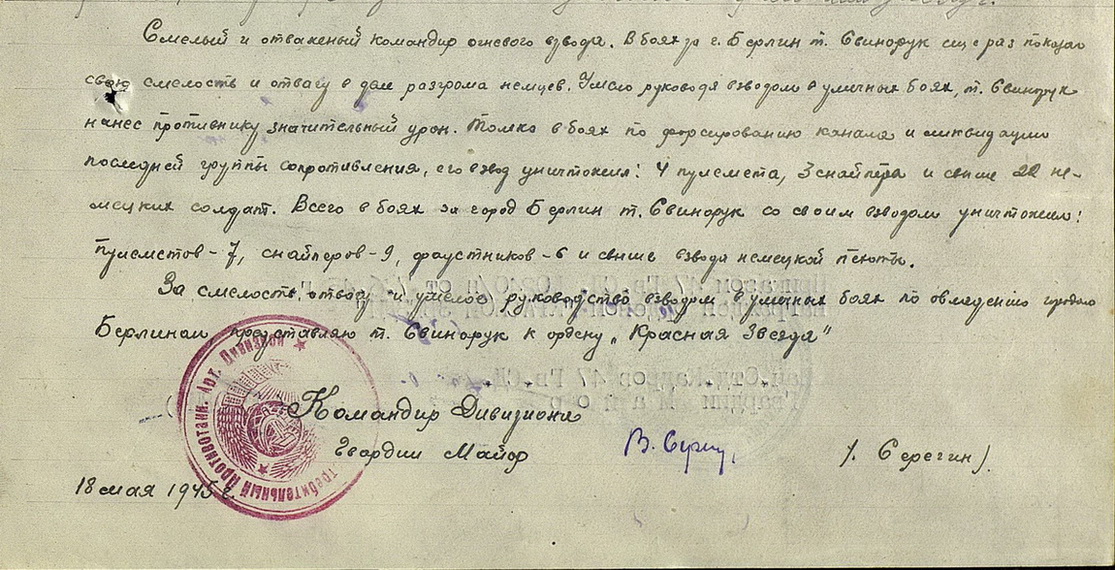 Смелый и отваженый командир огневого взвода. В боях за г. Берлин т. Свинорук еще раз показал
свою смелость и отвагу в деле разгрома немцев. Умело руководя взводом в уличных боях, т. Свинорук
нанес противнику значительный урон. Только в боях по форсированию канала и ликвидации
последней группы сопротивления, его взвод уничтожил: 4 пулемета, 3 снайпера и свыше 22 не-
мецких солдат. Всего в боях за город Берлин т. Свинорук со своим взводом уничтожил:
Пулеметов - 7, снайперов - 9, фаустников - 6 и свыше взвода немецкой пехоты.
За смелость, отвагу и умелое руководство взводом в уличных боях по овладению городом
Берлином представляю т. Свинорук к ордену „Красная Звезда"
Командир Дивизиона
Гвардии Майор
/. Серегин/.
18 мая 1945 г.
требительный Противотанк. Арт. Дивизион